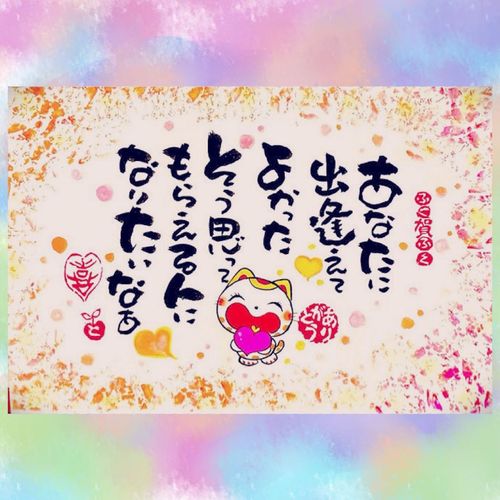 あなたに
出逢えて
よかった
そう思って
もらえる人に
なりたいなぁ
ありがとう
喜